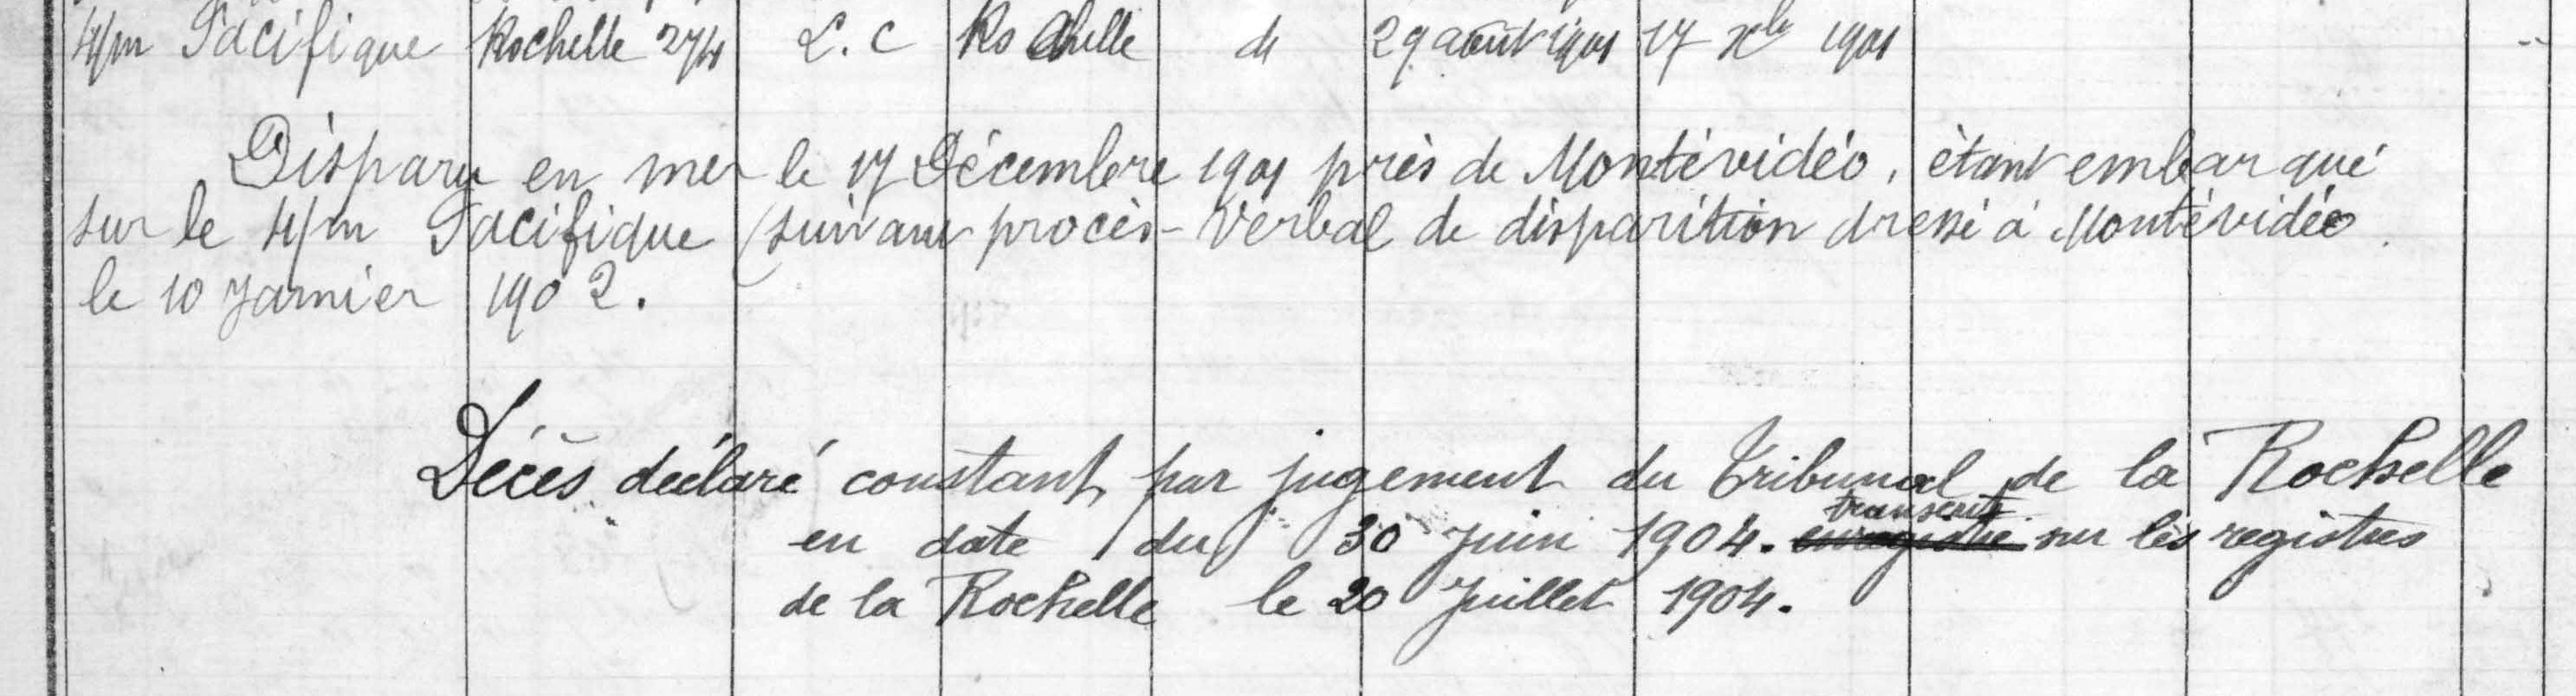 4/m Pacifique Rochelle 274 L.C Rochelle de 29 août 1901 17 Xbe 1901
Disparu en mer le 17 Décembre 1901 près de Montévidéo, étant embarqué
sur le 4/m Pacifique (suivant procès-verbal de disparition dressé à Montévidéo
le 10 Janvier 1902.
Décès déclaré constant par jugement du Tribunal de la Rochelle
transcrit
en date du 30 Juin 1904. enregistré sur les registres
de la Rochelle le 20 Juillet 1904.